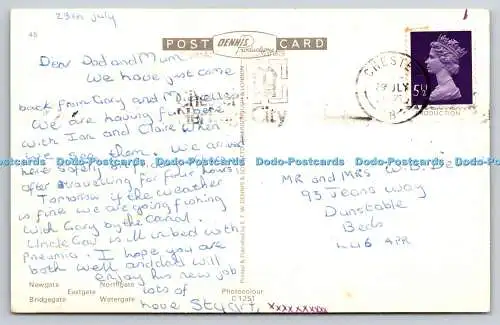 29th July
45
POST DENNIS Productions CARD
Dear Dad and Mum
We have just come
back from Gary and Michelles
We are having fun
with Ian and Claire when
we see them. We arrived
here safely
after travelling for four hours
Tomorrow if the weather
is fine we are going fishing
with Gary by the Canal.
Uncle Gav is ill in bed with
Pneumia. I hope you are
both well and dad will
enjoy his new job
lots of
love Stuart xxxxxxxxx
Newgate Northgate
Eastgate
Bridgegate Watergate
Photocolour
C1251
CHESTER
JULY
5½
PRODUCTION
City
MR and MRS W.
93 Jeans Way
Dunstable
Beds
LU6 4PR
Dodo-Postcards Dodo-Postcards Dodo-Postcards Dodo-Postcards Dodo-Postcards Dodo-Postcards